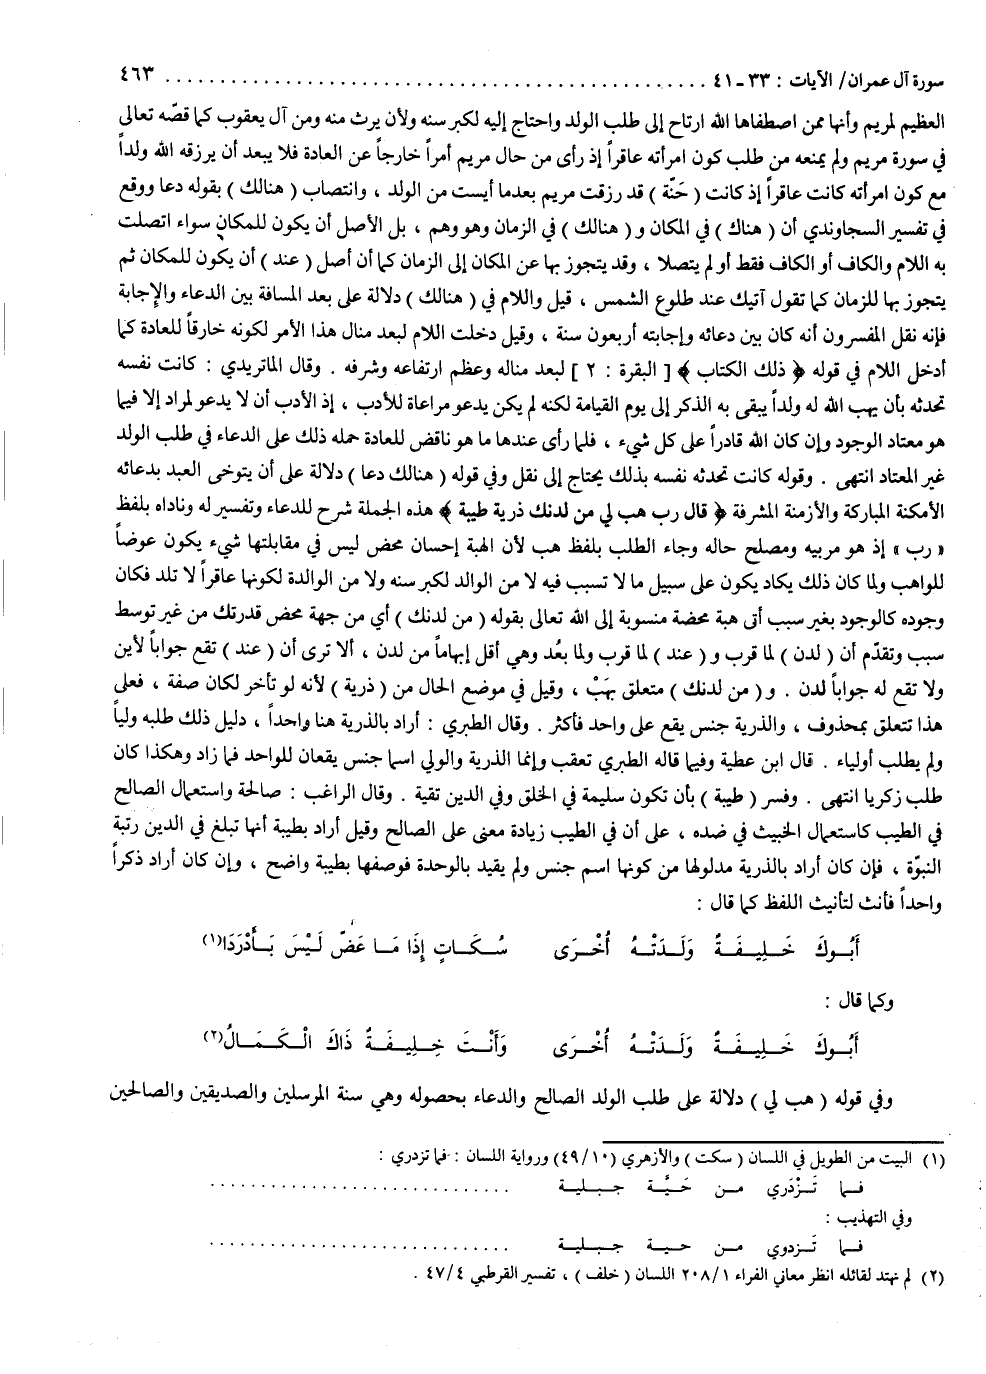 سورة آل عمران/ الآيات : ٣٣ ـ ٤١ ........................................................ ٤٦٣
العظيم لمريم وأنها ممن اصطفاها الله ارتاح إلى طلب الولد واحتاج إليه لكبر سنه ولأن يرث منه ومن آل يعقوب كما قصّه تعالى
في سورة مريم ولم يمنعه من طلب كون امرأته عاقراً إذ رأى من حال مريم أمراً خارجاً عن العادة فلا يبعد أن يرزقه الله ولداً
مع كون امرأته كانت عاقراً إذ كانت ( حَنّة ) قد رزقت مريم بعدما أيست من الولد ، وانتصاب ( هنالك ) بقوله دعا ووقع
في تفسير السجاوندي أن ( هناك ) في المكان و ( هنالك ) في الزمان وهو وهم ، بل الأصل أن يكون للمكان سواء اتصلت
به اللام والكاف أو الكاف فقط أو لم يتصلا ، وقد يتجوز بها عن المكان إلى الزمان كما أن أصل ( عند ) أن يكون للمكان ثم
يتجوز بها للزمان كما تقول آتيك عند طلوع الشمس ، قيل واللام في ( هنالك ) دلالة على بعد المسافة بين الدعاء والإجابة
فإنه نقل المفسرون أنه كان بين دعائه وإجابته أربعون سنة ، وقيل دخلت اللام لبعد منال هذا الأمر لكونه خارقاً للعادة كما
أدخل اللام في قوله ﴿ ذلك الكتاب ﴾ [ البقرة : ٢ ] لبعد مناله وعظم ارتفاعه وشرفه . وقال الماتريدي : كانت نفسه
تحدثه بأن يهب الله له ولداً يبقى به الذكر إلى يوم القيامة لكنه لم يكن يدعو مراعاة للأدب ، إذ الأدب أن لا يدعو لمراد إلا فيما
هو معتاد الوجود وإن كان الله قادراً على كل شيء ، فلما رأى عندها ما هو ناقض للعادة حمله ذلك على الدعاء في طلب الولد
غير المعتاد انتهى . وقوله كانت تحدثه نفسه بذلك يحتاج إلى نقل وفي قوله ( هنالك دعا ) دلالة على أن يتوخى العبد بدعائه
الأمكنة المباركة والأزمنة المشرفة ﴿ قال رب هب لي من لدنك ذرية طيبة ﴾ هذه الجملة شرح للدعاء وتفسير له وناداه بلفظ
« رب » إذ هو مربيه ومصلح حاله وجاء الطلب بلفظ هب لأن الهبة إحسان محض ليس في مقابلتها شيء يكون عوضاً
للواهب ولما كان ذلك يكاد يكون على سبيل ما لا تسبب فيه لا من الوالد لكبر سنه ولا من الوالدة لكونها عاقراً لا تلد فكان
وجوده كالوجود بغير سبب أتى هبة محضة منسوبة إلى الله تعالى بقوله ( من لدنك ) أي من جهة محض قدرتك من غير توسط
سبب وتقدّم أن ( لدن ) لما قرب و ( عند ) لما قرب ولما بعُد وهي أقل إبهاماً من لدن ، ألا ترى أن ( عند ) تقع جواباً لأين
ولا تقع له جواباً لدن . و ( من لدنك ) متعلق بهَبْ ، وقيل في موضع الحال من ( ذرية ) لأنه لو تأخر لكان صفة ، فعلى
هذا تتعلق بمحذوف ، والذرية جنس يقع على واحد فأكثر . وقال الطبري : أراد بالذرية هنا واحداً ، دليل ذلك طلبه ولياً
ولم يطلب أولياء . قال ابن عطية وفيما قاله الطبري تعقب وإنما الذرية والولي اسما جنس يقعان للواحد فما زاد وهكذا كان
طلب زكريا انتهى . وفسر ( طيبة ) بأن تكون سليمة في الخلق وفي الدين تقية . وقال الراغب : صالحة واستعمال الصالح
في الطيب كاستعمال الخبيث في ضده ، على أن في الطيب زيادة معنى على الصالح وقيل أراد بطيبة أنها تبلغ في الدين رتبة
النبوّة ، فإن كان أراد بالذرية مدلولها من كونها اسم جنس ولم يقيد بالوحدة فوصفها بطيبة واضح ، وإن كان أراد ذكراً
واحداً فأنث لتأنيث اللفظ كما قال :
أَبُوكَ خَلِيفَةٌ وَلَدَتْهُ أُخْرَى سُكَاتٍ إِذَا مَا عَضّ لَيْسَ بَأَدْرَدَا(١)
وكما قال :
أَبُوكَ خَلِيفَةٌ وَلَدَتْهُ أُخْرَى وَأَنْتَ خِلِيفَةٌ ذَاكَ الْكَمَالُ(٢)
وفي قوله ( هب لي ) دلالة على طلب الولد الصالح والدعاء بحصوله وهي سنة المرسلين والصديقين والصالحين
(١) البيت من الطويل في اللسان ( سكت ) والأزهري (١٠/ ٤٩) ورواية اللسان : فما تزدري :
فما تَزْدَري من حَيَّة جبلية ..............................
وفي التهذيب :
فما تَزدوي من حية جبلية ..............................
(٢) لم نهتد لقائله انظر معاني الفراء ١/ ٢٠٨ اللسان ( خلف ) ، تفسير القرطبي ٤/ ٤٧ .